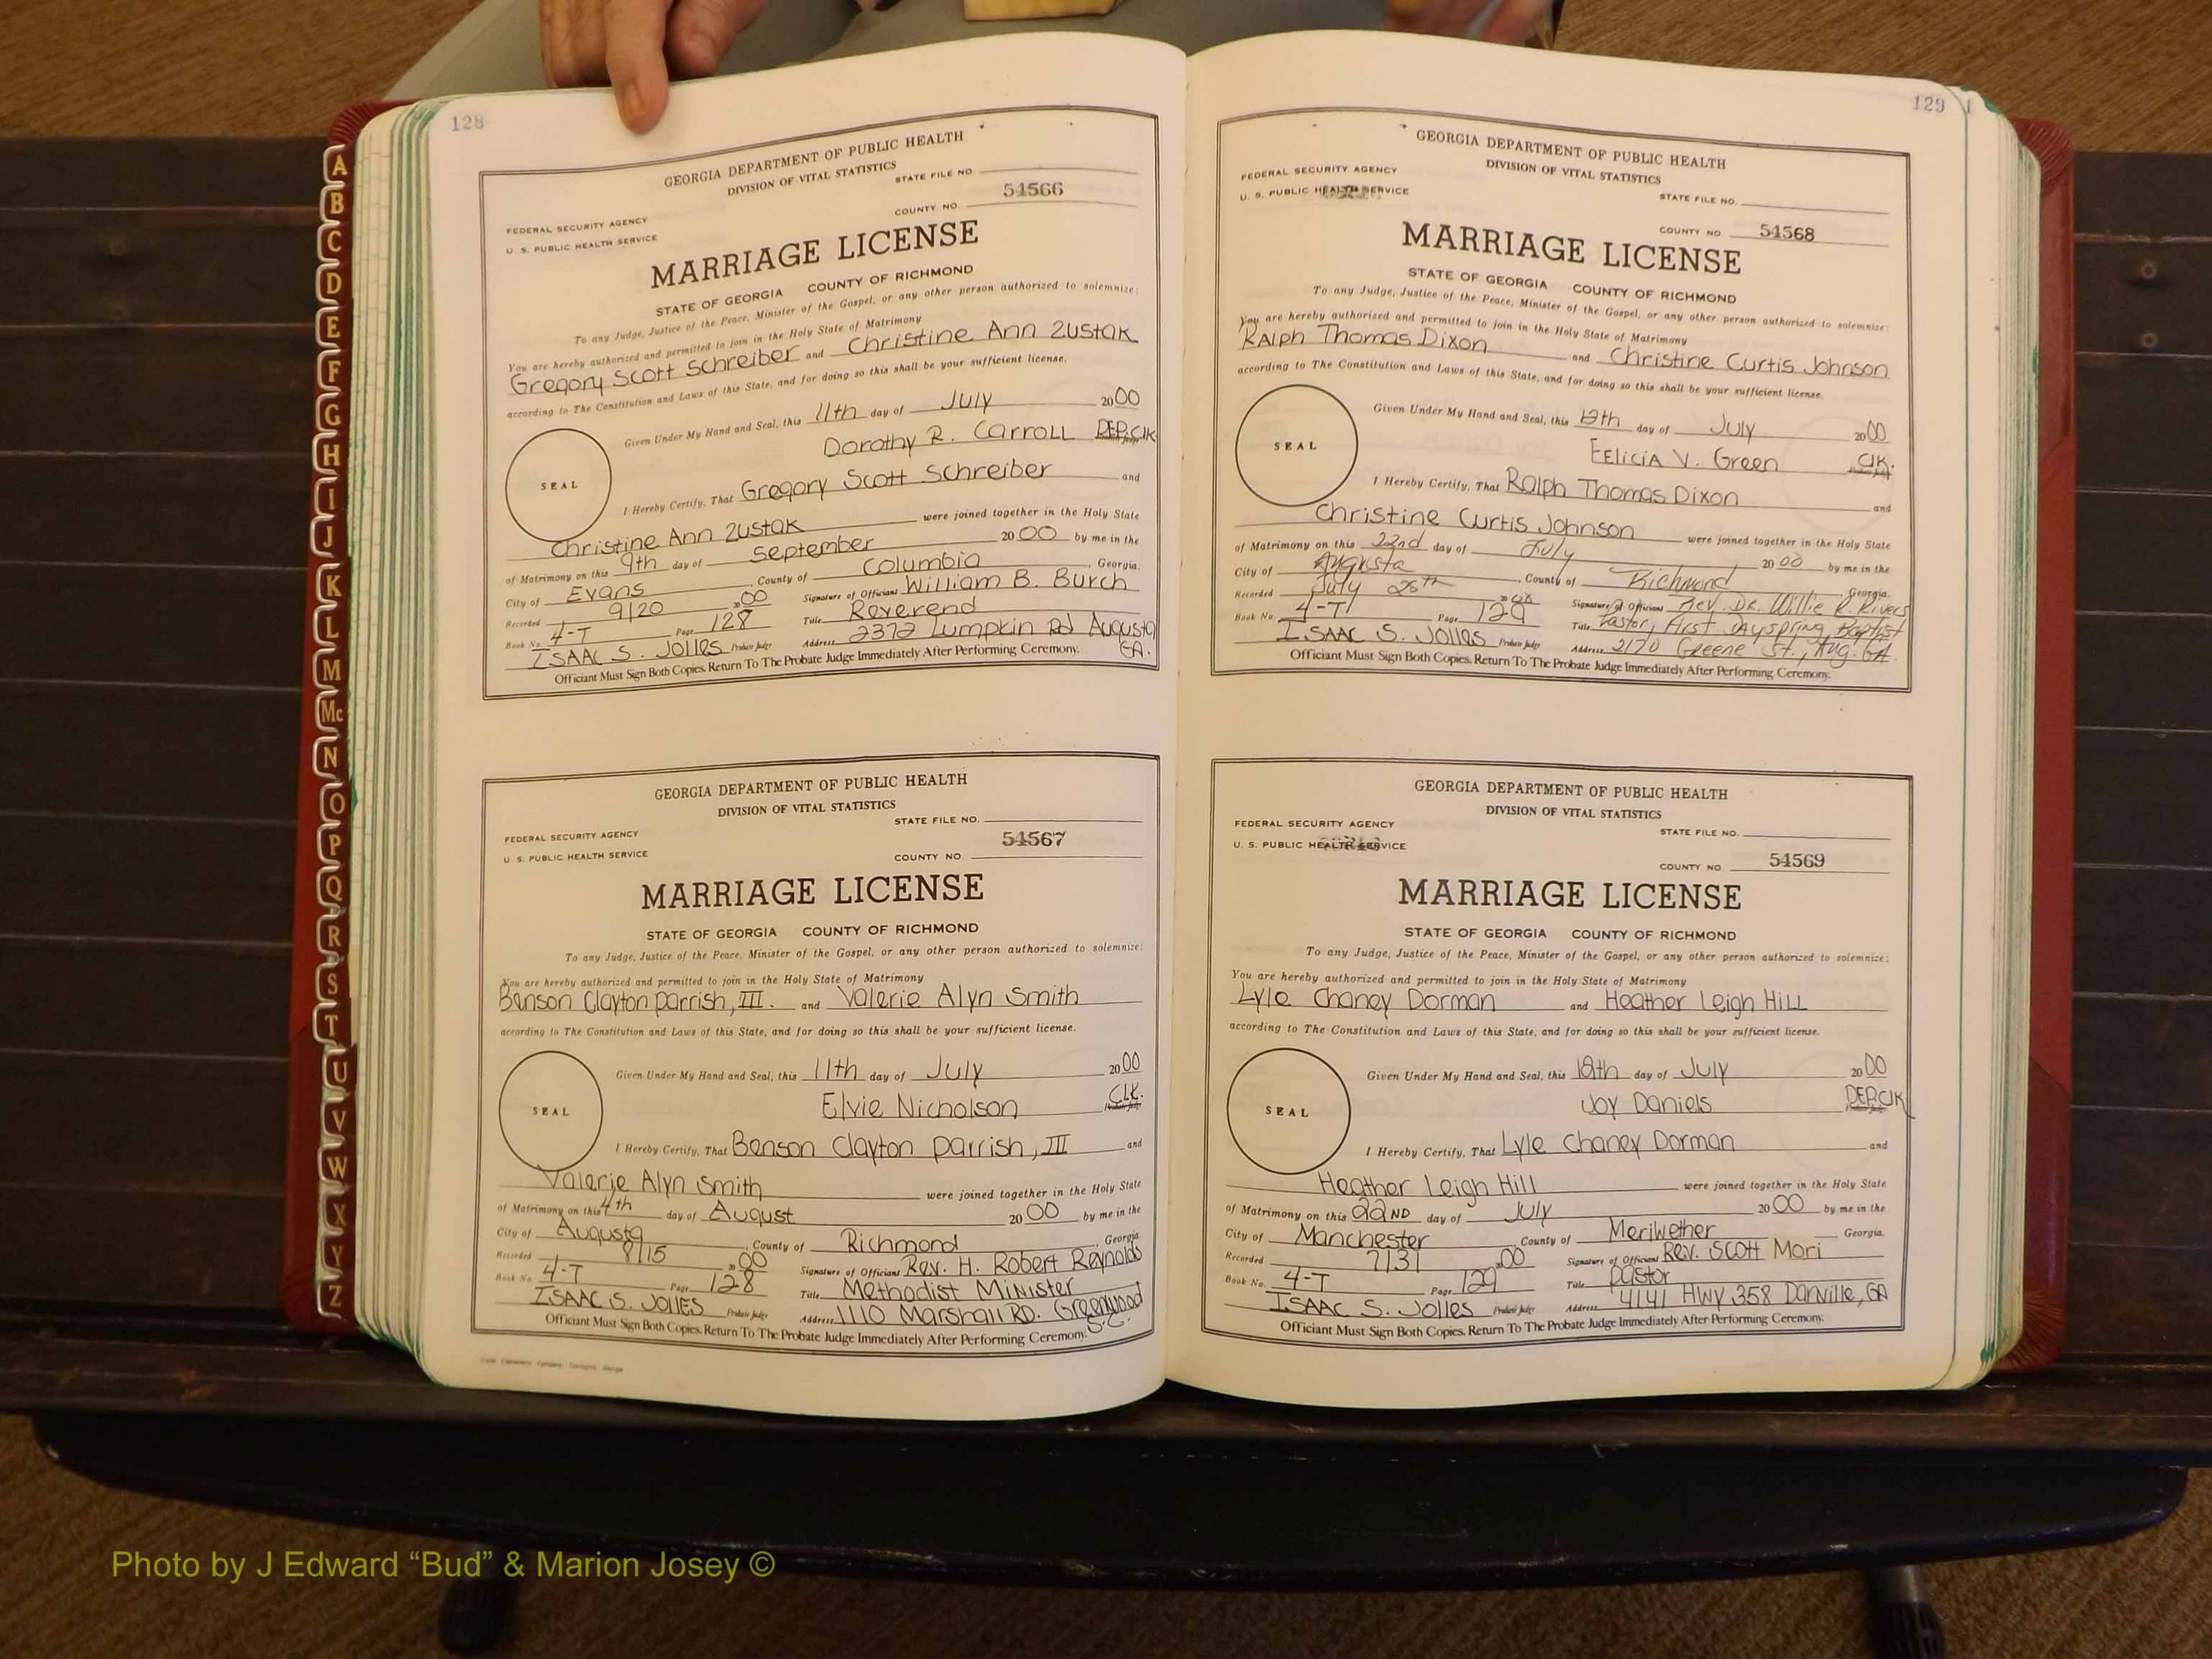 128
GEORGIA DEPARTMENT OF PUBLIC HEALTH
DIVISION OF VITAL STATISTICS
STATE FILE NO.
54566
COUNTY NO.
FEDERAL SECURITY AGENCY
U. S. PUBLIC HEALTH SERVICE
MARRIAGE LICENSE
STATE OF GEORGIA COUNTY OF RICHMOND
To any Judge, Justice of the Peace, Minister of the Gospel, or any other person authorized to solemnize:
You are hereby authorized and permitted to join in the Holy State of Matrimony
Gregory Scott Schreiber and Christine Ann Zustak
according to The Constitution and Laws of this State, and for doing so this shall be your sufficient license.
Given Under My Hand and Seal, this 11th day of July 2000
Dorothy R. Carroll DEP. Clk
SEAL
I Hereby Certify, That Gregory Scott Schreiber and
Christine Ann Zustak were joined together in the Holy State
of Matrimony on this 9th day of September 20 00 by me in the
City of Evans, County of Columbia, Georgia.
Recorded 9/20 2000 Signature of Official William B. Burch
Book No. 4-T Page 128 Title Reverend
ISAAC S. JOLLES Probate Judge Address 2372 Lumpkin Rd Augusta GA.
Officiant Must Sign Both Copies. Return To The Probate Judge Immediately After Performing Ceremony.
GEORGIA DEPARTMENT OF PUBLIC HEALTH
DIVISION OF VITAL STATISTICS
STATE FILE NO.
FEDERAL SECURITY AGENCY
54567
U. S. PUBLIC HEALTH SERVICE
COUNTY NO.
MARRIAGE LICENSE
STATE OF GEORGIA COUNTY OF RICHMOND
To any Judge, Justice of the Peace, Minister of the Gospel, or any other person authorized to solemnize:
You are hereby authorized and permitted to join in the Holy State of Matrimony
Benson Clayton Parrish, III. and Valerie Alyn Smith
according to The Constitution and Laws of this State, and for doing so this shall be your sufficient license.
Given Under My Hand and Seal, this 11th day of July 2000
Elvie Nicholson CLK.
SEAL
I Hereby Certify, That Benson Clayton Parrish, III and
Valerie Alyn Smith were joined together in the Holy State
of Matrimony on this 4th day of August 20 00 by me in the
City of Augusta, County of Richmond, Georgia.
Recorded 8/15 2000 Signature of Official Rev. H. Robert Reynolds
Book No. 4-T Page 128 Title Methodist Minister
ISAAC S. JOLLES Probate Judge Address 1110 Marshall RD. Greenwood S.C.
Officiant Must Sign Both Copies. Return To The Probate Judge Immediately After Performing Ceremony.
129 1
GEORGIA DEPARTMENT OF PUBLIC HEALTH
DIVISION OF VITAL STATISTICS
FEDERAL SECURITY AGENCY
U. S. PUBLIC HEALTH SERVICE
STATE FILE NO.
COUNTY NO. 54568
MARRIAGE LICENSE
STATE OF GEORGIA COUNTY OF RICHMOND
To any Judge, Justice of the Peace, Minister of the Gospel, or any other person authorized to solemnize:
You are hereby authorized and permitted to join in the Holy State of Matrimony
Ralph Thomas Dixon and Christine Curtis Johnson
according to the Constitution and Laws of this State, and for doing so this shall be your sufficient license.
Given Under My Hand and Seal, this day of July 2000
Felicia V. Green Clk.
SEAL
I Hereby Certify, That Ralph Thomas Dixon and
Christine Curtis Johnson were joined together in the Holy State
of Matrimony on this 22nd day of July 20 00 by me in the
City of Augusta, County of Richmond, Georgia.
Recorded July 25th Signature of Official Rev. Dr. Willie R. Rivers
Book No. 4-T Page 129 Title Pastor, First Dayspring Baptist
ISAAC S. JOLLES Probate Judge Address 2170 Greene St., Aug. GA.
Officiant Must Sign Both Copies. Return To The Probate Judge Immediately After Performing Ceremony.
GEORGIA DEPARTMENT OF PUBLIC HEALTH
DIVISION OF VITAL STATISTICS
FEDERAL SECURITY AGENCY
STATE FILE NO.
U. S. PUBLIC HEALTH SERVICE
COUNTY NO. 54569
MARRIAGE LICENSE
STATE OF GEORGIA COUNTY OF RICHMOND
To any Judge, Justice of the Peace, Minister of the Gospel, or any other person authorized to solemnize:
You are hereby authorized and permitted to join in the Holy State of Matrimony
Lyle Chaney Dorman and Heather Leigh Hill
according to The Constitution and Laws of this State, and for doing so this shall be your sufficient license.
Given Under My Hand and Seal, this day of July 2000
Joy Daniels DEP. Clk
SEAL
I Hereby Certify, That Lyle Chaney Dorman and
Heather Leigh Hill were joined together in the Holy State
of Matrimony on this 22ND day of July 20 00 by me in the
City of Manchester, County of Meriwether Georgia.
Recorded 7/31 2000 Signature of Official Rev. Scott Mori
Book No. 4-T Page 129 Title Pastor
ISAAC S. JOLLES Probate Judge Address 4141 HWY 358 Danville, GA
Officiant Must Sign Both Copies. Return To The Probate Judge Immediately After Performing Ceremony.
A
B
C
D
E
F
G
H
I
J
K
L
M
Mc
N
O
P
Q
R
S
T
U
V
W
X
Y
Z
Photo by J Edward “Bud” & Marion Josey ©